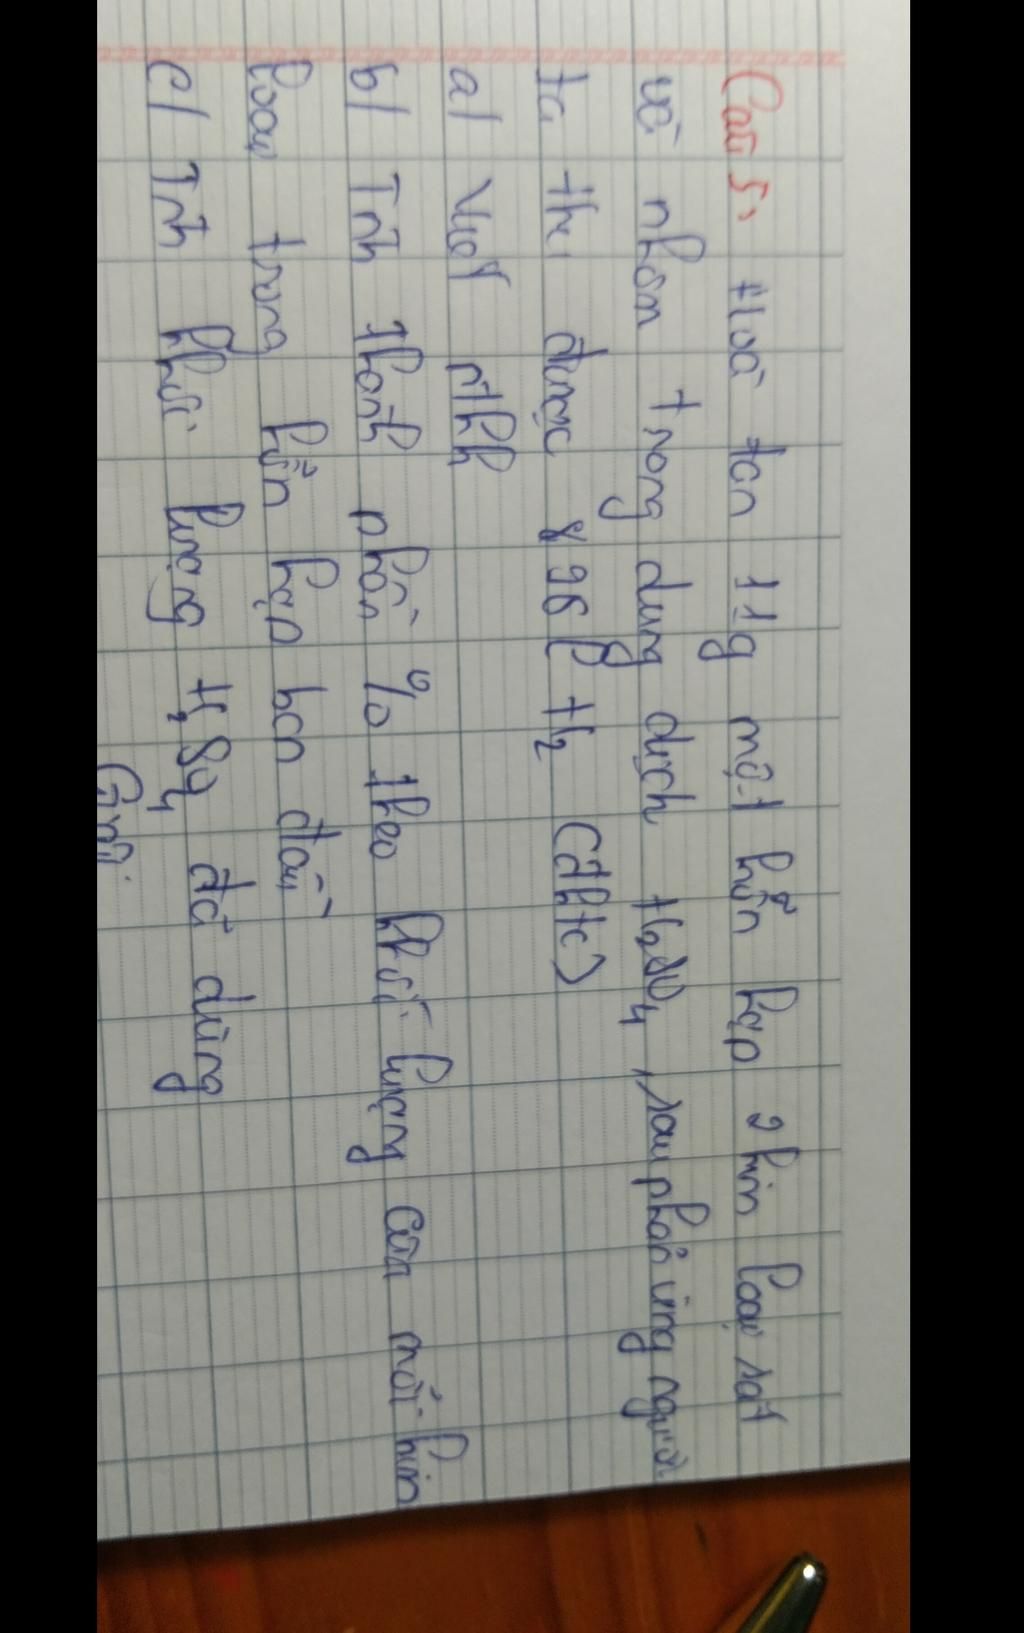 Câu 5, Hoà tan 11g một hỗn hợp 2 kim loại sắt
và nhôm trong dung dịch H₂SO₄, sau phản ứng người
ta thu được 8 96 l H₂ (đktc)
a/ Viết pthh
b/ Tính thành phần % theo khối lượng của mỗi kim
loại trong hỗn hợp ban đầu
c/ Tính khối lượng H₂SO₄ đã dùng